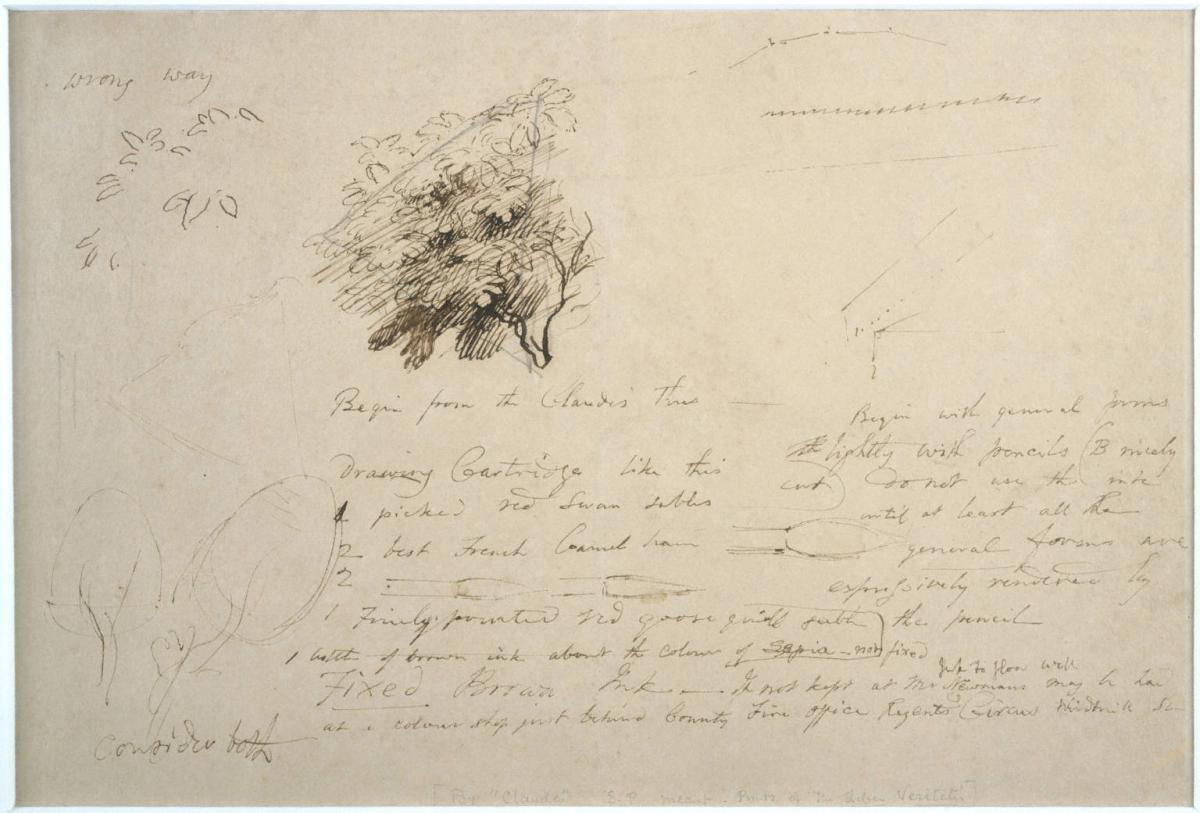 wrong way
Begin from the Claude's Trees
Drawing Cartridge like this
1 picked red Swan sables
2 best French Camel hair
2
1 Finely pointed red goose quill sable
1 bottle of brown ink about the colour of Sepia - not fixed
Fixed Brown Ink - If not kept at Mr Newmans may be had
Ink to flow well
at a colour shop just behind County Fire office Regents Circus Windmill St
Begin with general forms
lightly with pencils (B nicely
cut) do not use the ink
until at least all the
general forms are
expressively rendered by
the pencil
consider both
[By "Claude" S.P. meant Prints of the Liber Veritatis]